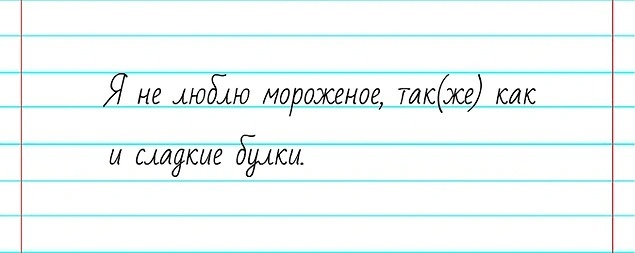 Я не люблю мороженое, так(же) как
и сладкие булки.